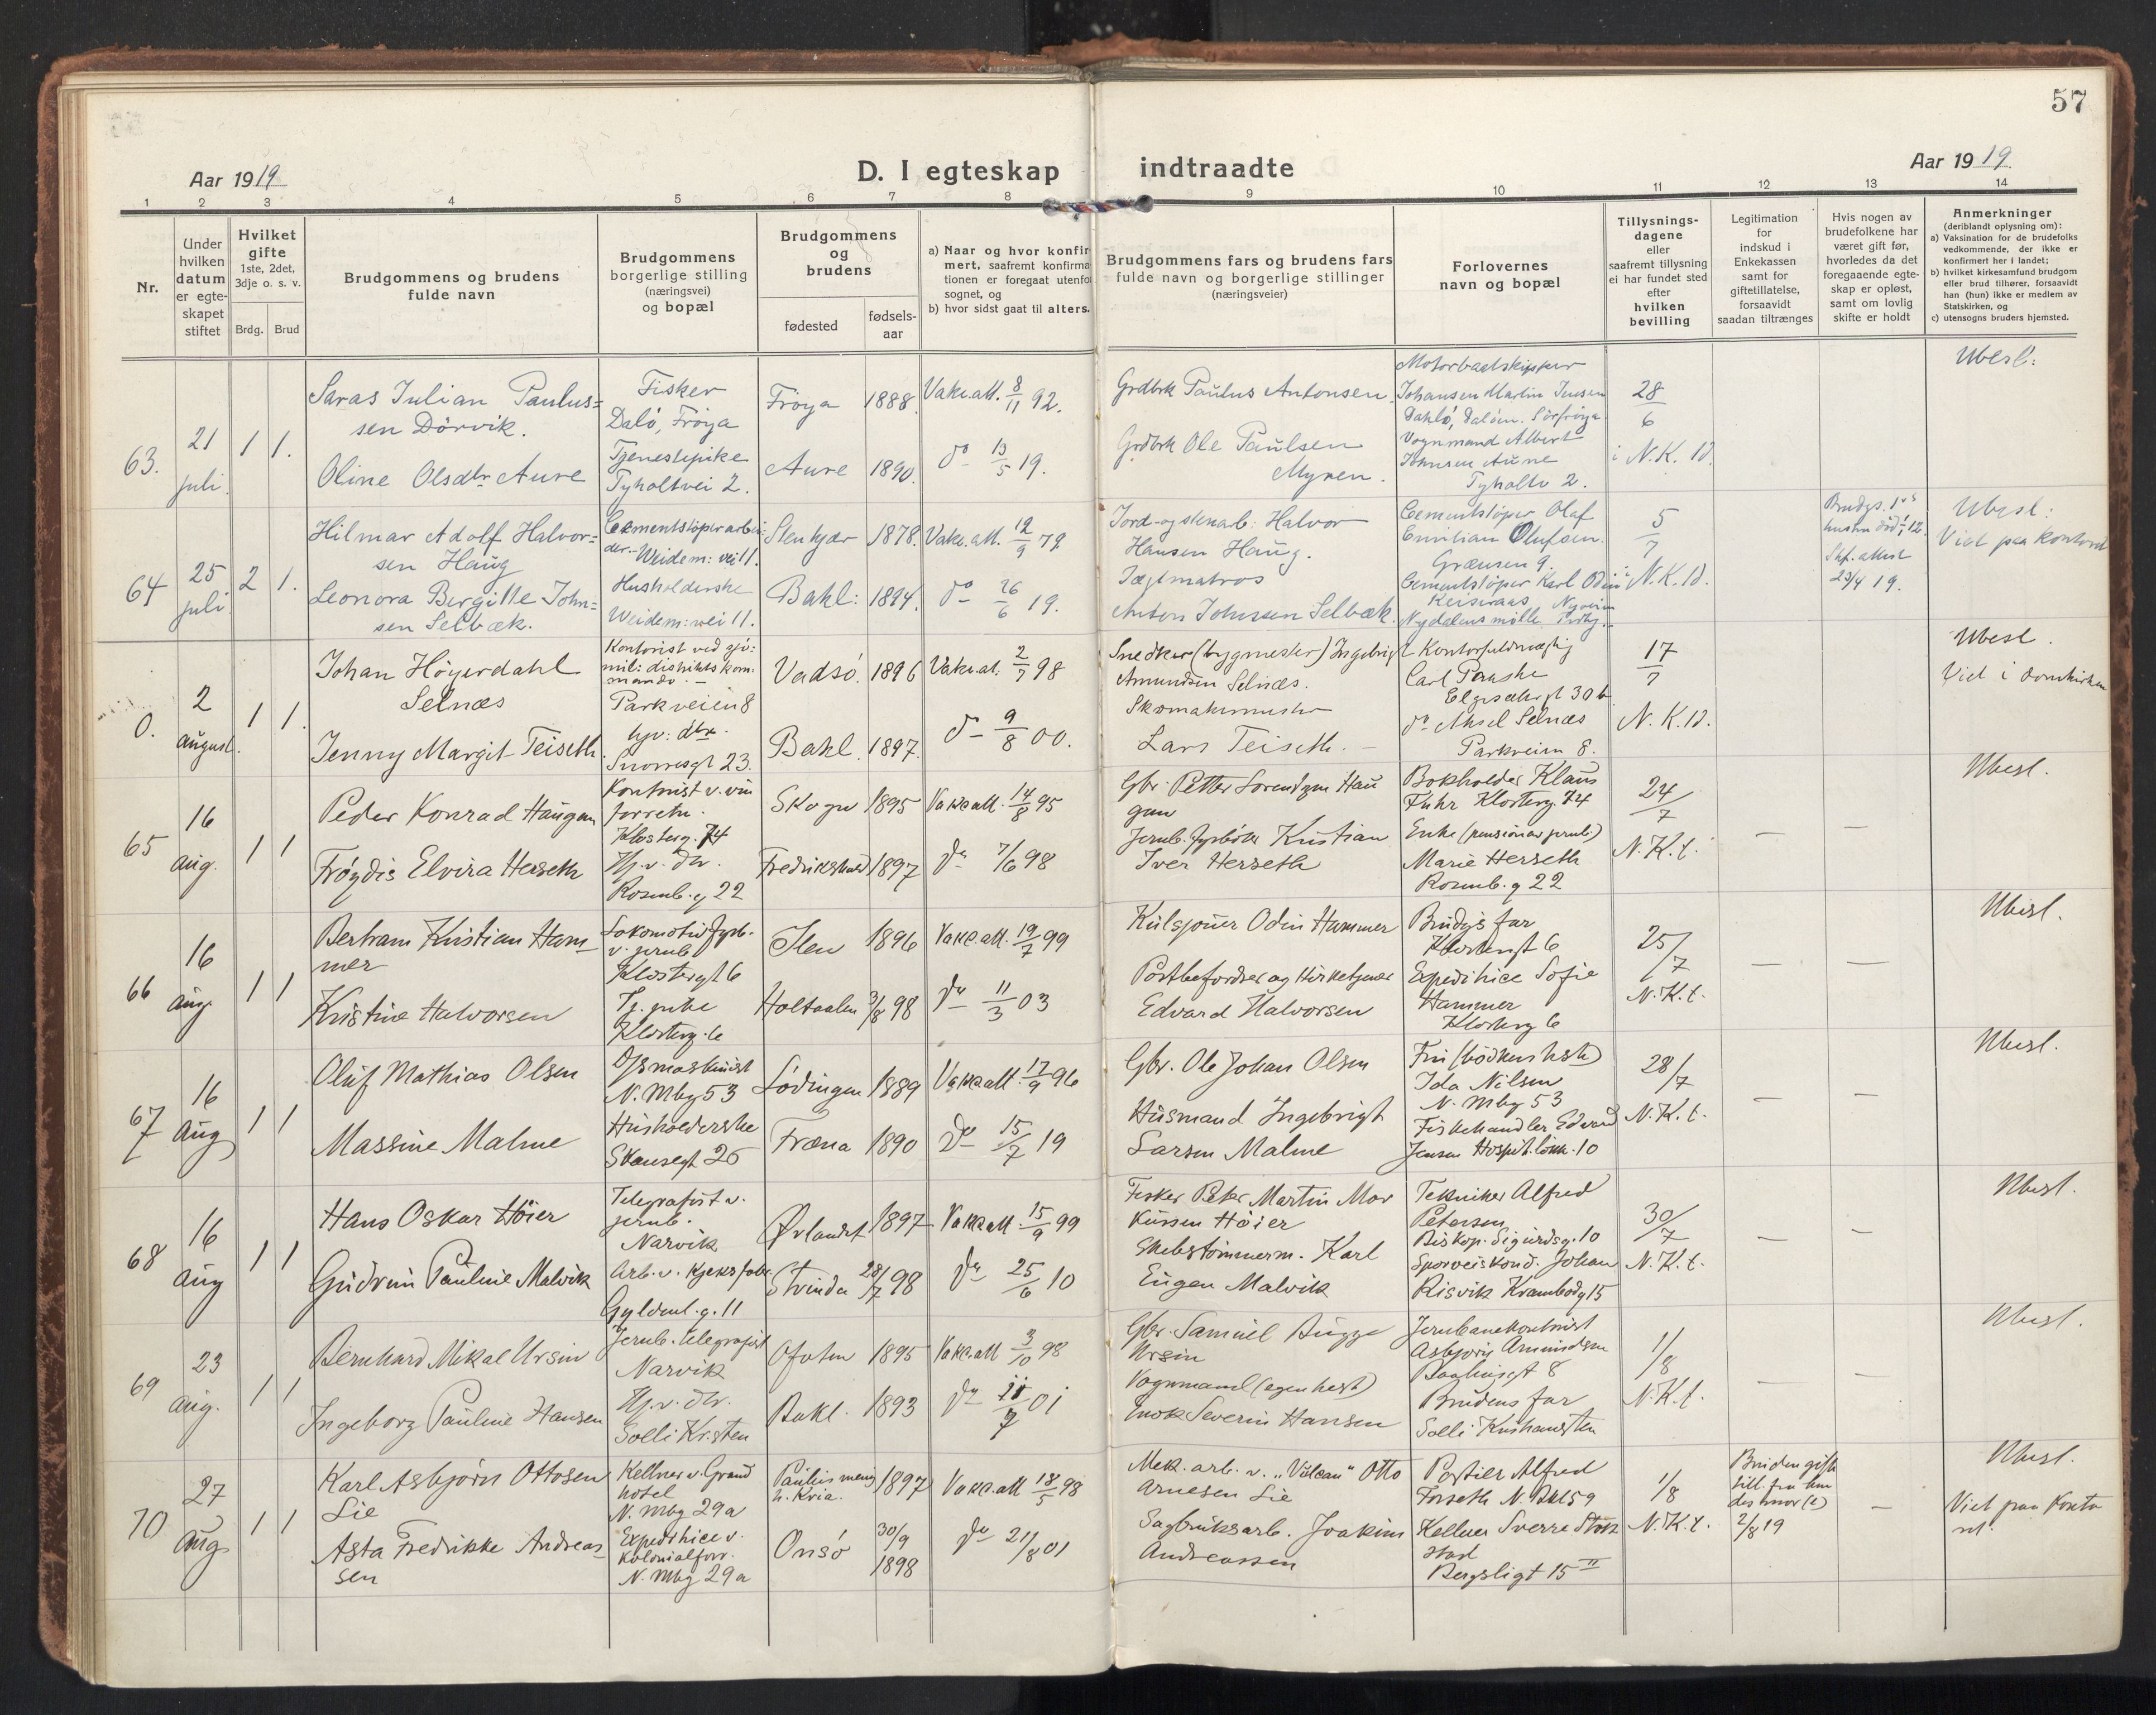 57
Aar 1919
D. I egteskap indtraadte
Aar 1919
1 2 3 4 5 6 7 8 9 10 11 12 13 14
Nr.
Under
hvilken
datum
er egte-
skapet
stiftet
Hvilket
gifte
1ste, 2det,
3dje o. s. v.
Brdg. Brud
Brudgommens og brudens
fulde navn
Brudgommens
borgerlige stilling
(næringsvei)
og bopæl
Brudgommens
og
brudens
fødested
fødsels-
aar
a) Naar og hvor konfir
mert, saafremt konfirma
tionen er foregaat utenfo
sognet, og
b) hvor sidst gaat til alters.
Brudgommens fars og brudens fars
fulde navn og borgerlige stillinger
(næringsveier)
Forlovernes
navn og bopæl
Tillysnings-
dagene
eller
saafremt tillysning
ei har fundet sted
efter
hvilken
bevilling
Legitimation
for
indskud i
Enkekassen
samt for
giftetillatelse,
forsaavidt
saadan tiltrænges
Hvis nogen av
brudefolkene har
været gift før,
hvorledes da det
foregaaende egte-
skap er opløst,
samt om lovlig
skifte er holdt
Anmerkninger
(deriblandt oplysning om):
a) Vaksination for de brudefolks
vedkommende, der ikke er
konfirmert her i landet;
b) hvilket kirkesamfund brudgom
eller brud tilhører, forsaavidt
han (hun) ikke er medlem av
Statskirken, og
c) utensogns bruders hjemsted.
63.
21
juli.
1 1.
Saras Julian Paulus=
sen Dörvik.
Oline Olsdtr Aure
Fisker
Dalö, Fröya
Tjenestepike
Tyholtvei 2.
Fröya 1888.
Aure 1890.
Vakc.att. 8/11 92.
do 13/5 19.
Grdbrk Paulus Antonsen.
Grdbrk Ole Paulsen
Myren.
Motorbaatskipper
Johansen Martin Jensen
Vognmand Albert
Johnsen Aune
Tyholtv 2.
28
6
i N. K. 1d.
Ubesl:
64
25
juli.
2 1.
Hilmar Adolf Halvor=
sen Haug
Leonora Bergitte John=
sen Selbæk.
Cementstöperarbei
der. Weidem: vei 11.
Husholderske
Weidem: vei 11.
Stenkjær 1878.
Bakl: 1894.
Vakc.att. 12/9 79
do 26/6 19.
Jord- og stenarb: Halvor
Hansen Haug.
Jægtmatros
Anton Johnsen Selbæk.
Cementstöper Olaf
Emilian Olufsen.
Grænsen 9.
Cementstöper Karl Odin
Nydalens mölle
5
7
N. K. 1d.
Skf. attest
23/4 19.
Ubesl:
Viet paa kontoret
0.
2
august.
1 1.
Johan Höyerdahl
Selnæs
Jenny Margit Teiseth.
Kontorist ved
mil: distriktskom:
mando.
Parkveien 8
Snorresgt 23.
Vadsö. 1896
Bakl. 1897.
Vakc.at. 2/7 98
do 9/8 00.
Snedker (bygmester) Ingebrigt
Amundsen Selnæs.
Skomakermester
Lars Teiseth.
Kontorfuldmægtig
Carl
Elgesætergt 30b
do Aksel Selnæs
Parkveien 8.
17
7
N. K. 1d.
Ubesl.
Viet i domkirken
65
16
aug.
1 1
Peder Konrad Haugan
Fröydis Elvira Herseth
Kontorist v. vin
forretn.
Klosterg. 74
Hj. v. do.
Rosenb. g 22
Skogn 1895
Fredrikshald 1897
Vakc att. 14/8 95
do 7/6 98
Gbr. Petter Lorendzen Hau
gan
Jernb. fyrböter Kristian
Iver Herseth
Bokholder Klaus
Fuhr Klosterg. 74
Enke (pensionær jernb.)
Marie Herseth
Rosenb. g 22
24/7
N. K. t.
Ubesl.
66
16
aug.
1 1
Bertram Kristian Ham-
mer
Kristine Halvorsen
Lokomotivfyrb.
v. jernb.
Klostergt 6
Tj. pike
Klosterg. 6
Ilen 1896
Holtaalen 3/8 98
Vakc.att. 19/7 99
do 11/3 03
Kulsjouer Odin Hammer
Postbefordrer og kirketjener
Edvard Halvorsen
Brudgs far
Klostergt 6
Expeditrice Sofie
Hammer
Klosterg 6
25/7
N. K. t.
Ubesl.
67
16
Aug
1 1
Oluf Mathias Olsen
Massine Malme
Dpsmaskinist
N. Mbg 53
Husholderske
Skansegt 26
Lödingen 1889
Fræna 1890
Vakc att. 17/9 96
Do 15/7 19
Gbr. Ole Johan Olsen
Husmand Ingebrigt
Larsen Malme
Ida Nilsen
N. Mbg 53
Fiskehandler Edvard
Jensen Hospit.lökk. 10
28/7
N. K. t.
Ubesl.
68
16
aug
1 1
Hans Oskar Höier
Gudrun Pauline Malvik
Telegrafist v.
jernb.
Narvik
Arb. v. Kjeksfabr.
Gyldenl. g. 11
Ørlandet 1897
Strinda 28/7 98
Vakc att. 15/9 99
do 25/6 10
Fisker Peter Martin Mar
kussen Höier
Skibstömmerm. Karl
Eugen Malvik
Tekniker Alfred
Petersen
Biskop. Sigurdsg. 10
Sporveiskond. Johan
Risvik Krambodg 15
30/7
N. K. t.
Ubesl.
69
23
aug.
1 1
Bernhard Mikal Ursin
Ingeborg Pauline Hansen
Jernb. telegrafist
Narvik
Hj. v. do.
Solli Kr.sten
Ofoten 1895
Bakl. 1893
Vakc.att 3/10 98
do 11/7 01
Gbr. Samuel Bugge
Ursin
Vognmand (egen hest)
Enok Severin Hansen
Jernbanekontorist
Asbjörn Amundsen
Brudens far
Solli Kristiansten
1/8
N. K. t.
Ubesl.
70
27
Aug
1 1
Karl Asbjörn Ottosen
Lie
Asta Fredrikke Andreas-
sen
Kellner v. Grand
hotel
N. Mbg 29a
Expeditrice v.
Kolonialforr.
N. Mbg 29a
Paulus menig
h. Kria. 1897
Onsö 30/9
1898
Vakc.att 18/5 98
do 21/8 01
Mek. arb. v. "Vulcan" Otto
Arnesen Lie
Sagbruksarb. Joakim
Andreassen
Portier Alfred
Forseth N. Bkl 59
Kellner Sverre Stok
stad
Bergsligt 15 II
1/8
N. K. t.
Bruden gift
till. fra
2/8 19
Ubesl.
Viet paa Konto
ret.